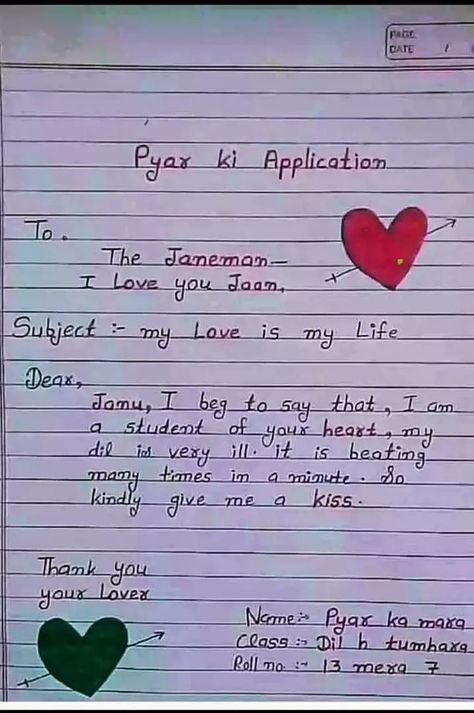 PAGE
DATE / /
Pyar ki Application
To.
The Janeman—
I Love you Jaan.
Subject :- my Love is my Life
Dear,
Jamu, I beg to say that, I am
a student of your heart, my
dil is very ill. it is beating
many times in a minute. So
kindly give me a kiss.
Thank you
your Lover
Name:- Pyar ka mara
Class :- Dil h tumhara
Roll no. :- 13 mera 7